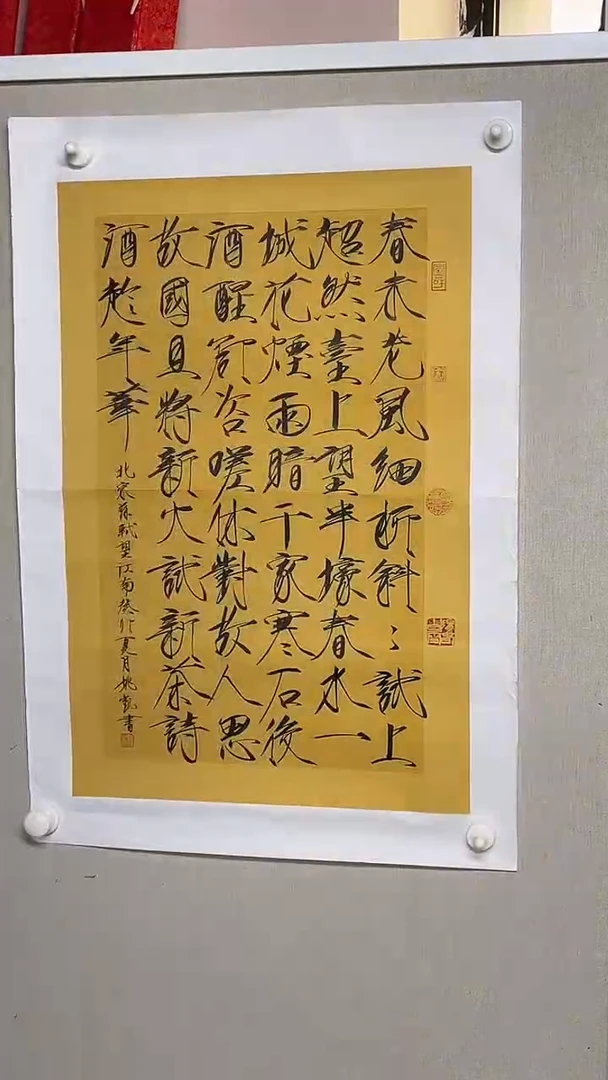 春未老風細柳斜〻試上
超然臺上望半壕春水一
城花煙雨暗千家寒石後
酒醒卻咨嗟休對故人思
故國且將新火試新茶詩
酒趁年華
北宋蘇軾望江南癸卯夏月姚書